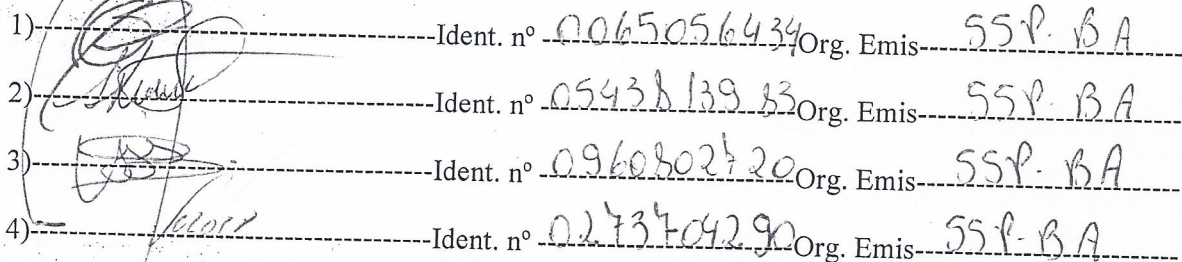 1) Ident. nº 0065056434 Org. Emis SSP. BA
2) Ident. nº 0543813983 Org. Emis SSP. BA
3) Ident. nº 0960802720 Org. Emis SSP- BA
4) Ident. nº 0273704290 Org. Emis SSP-BA